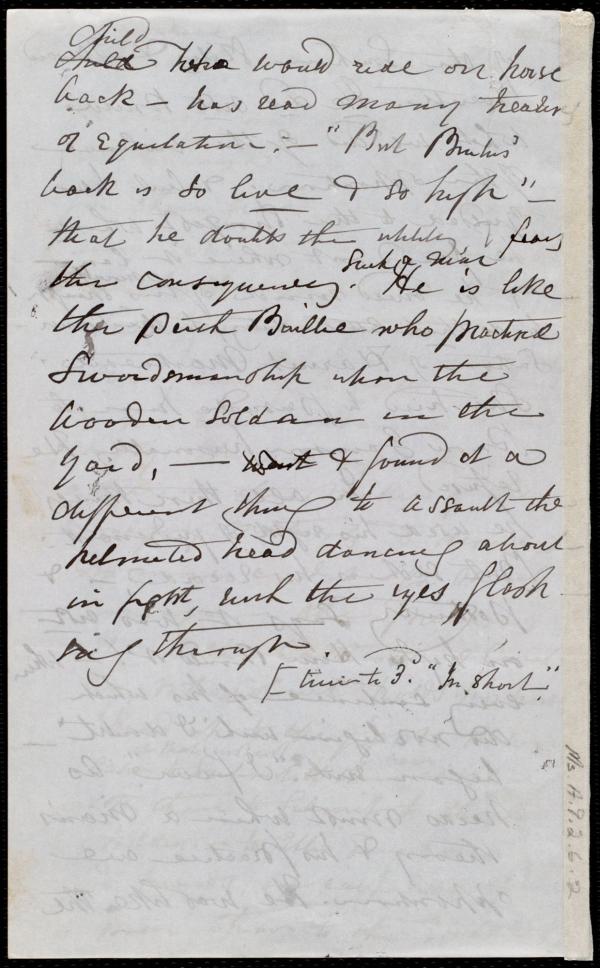 child
child who would ride on horse
back – has read many treatises
of Equitation. – "But Brutus'
back is so live & so high" –
that he doubts the utility, fears
the consequences. Such a man He is like
the Perth Baillie who practised
Swordsmanship upon the
wooden Soldan in the
Yard, — went & found it a
different thing to assault the
helmeted head dancing about
in fight, with the eyes flash
ing through.
[turn to 3d. "In short."
Ms. A.9.2.6.2